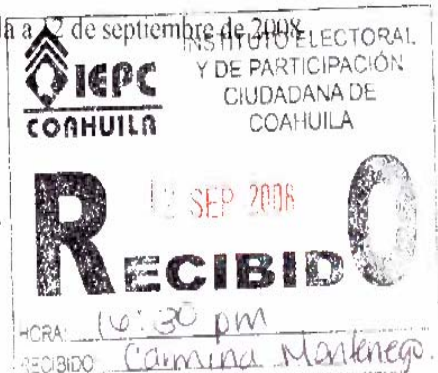 a 12 de septiembre de 2008.
IEPC
COAHUILA
INSTITUTO ELECTORAL
Y DE PARTICIPACIÓN
CIUDADANA DE
COAHUILA
12 SEP 2008
RECIBIDO
HORA: 16:30 pm
RECIBIDO Carmina Montenegro.